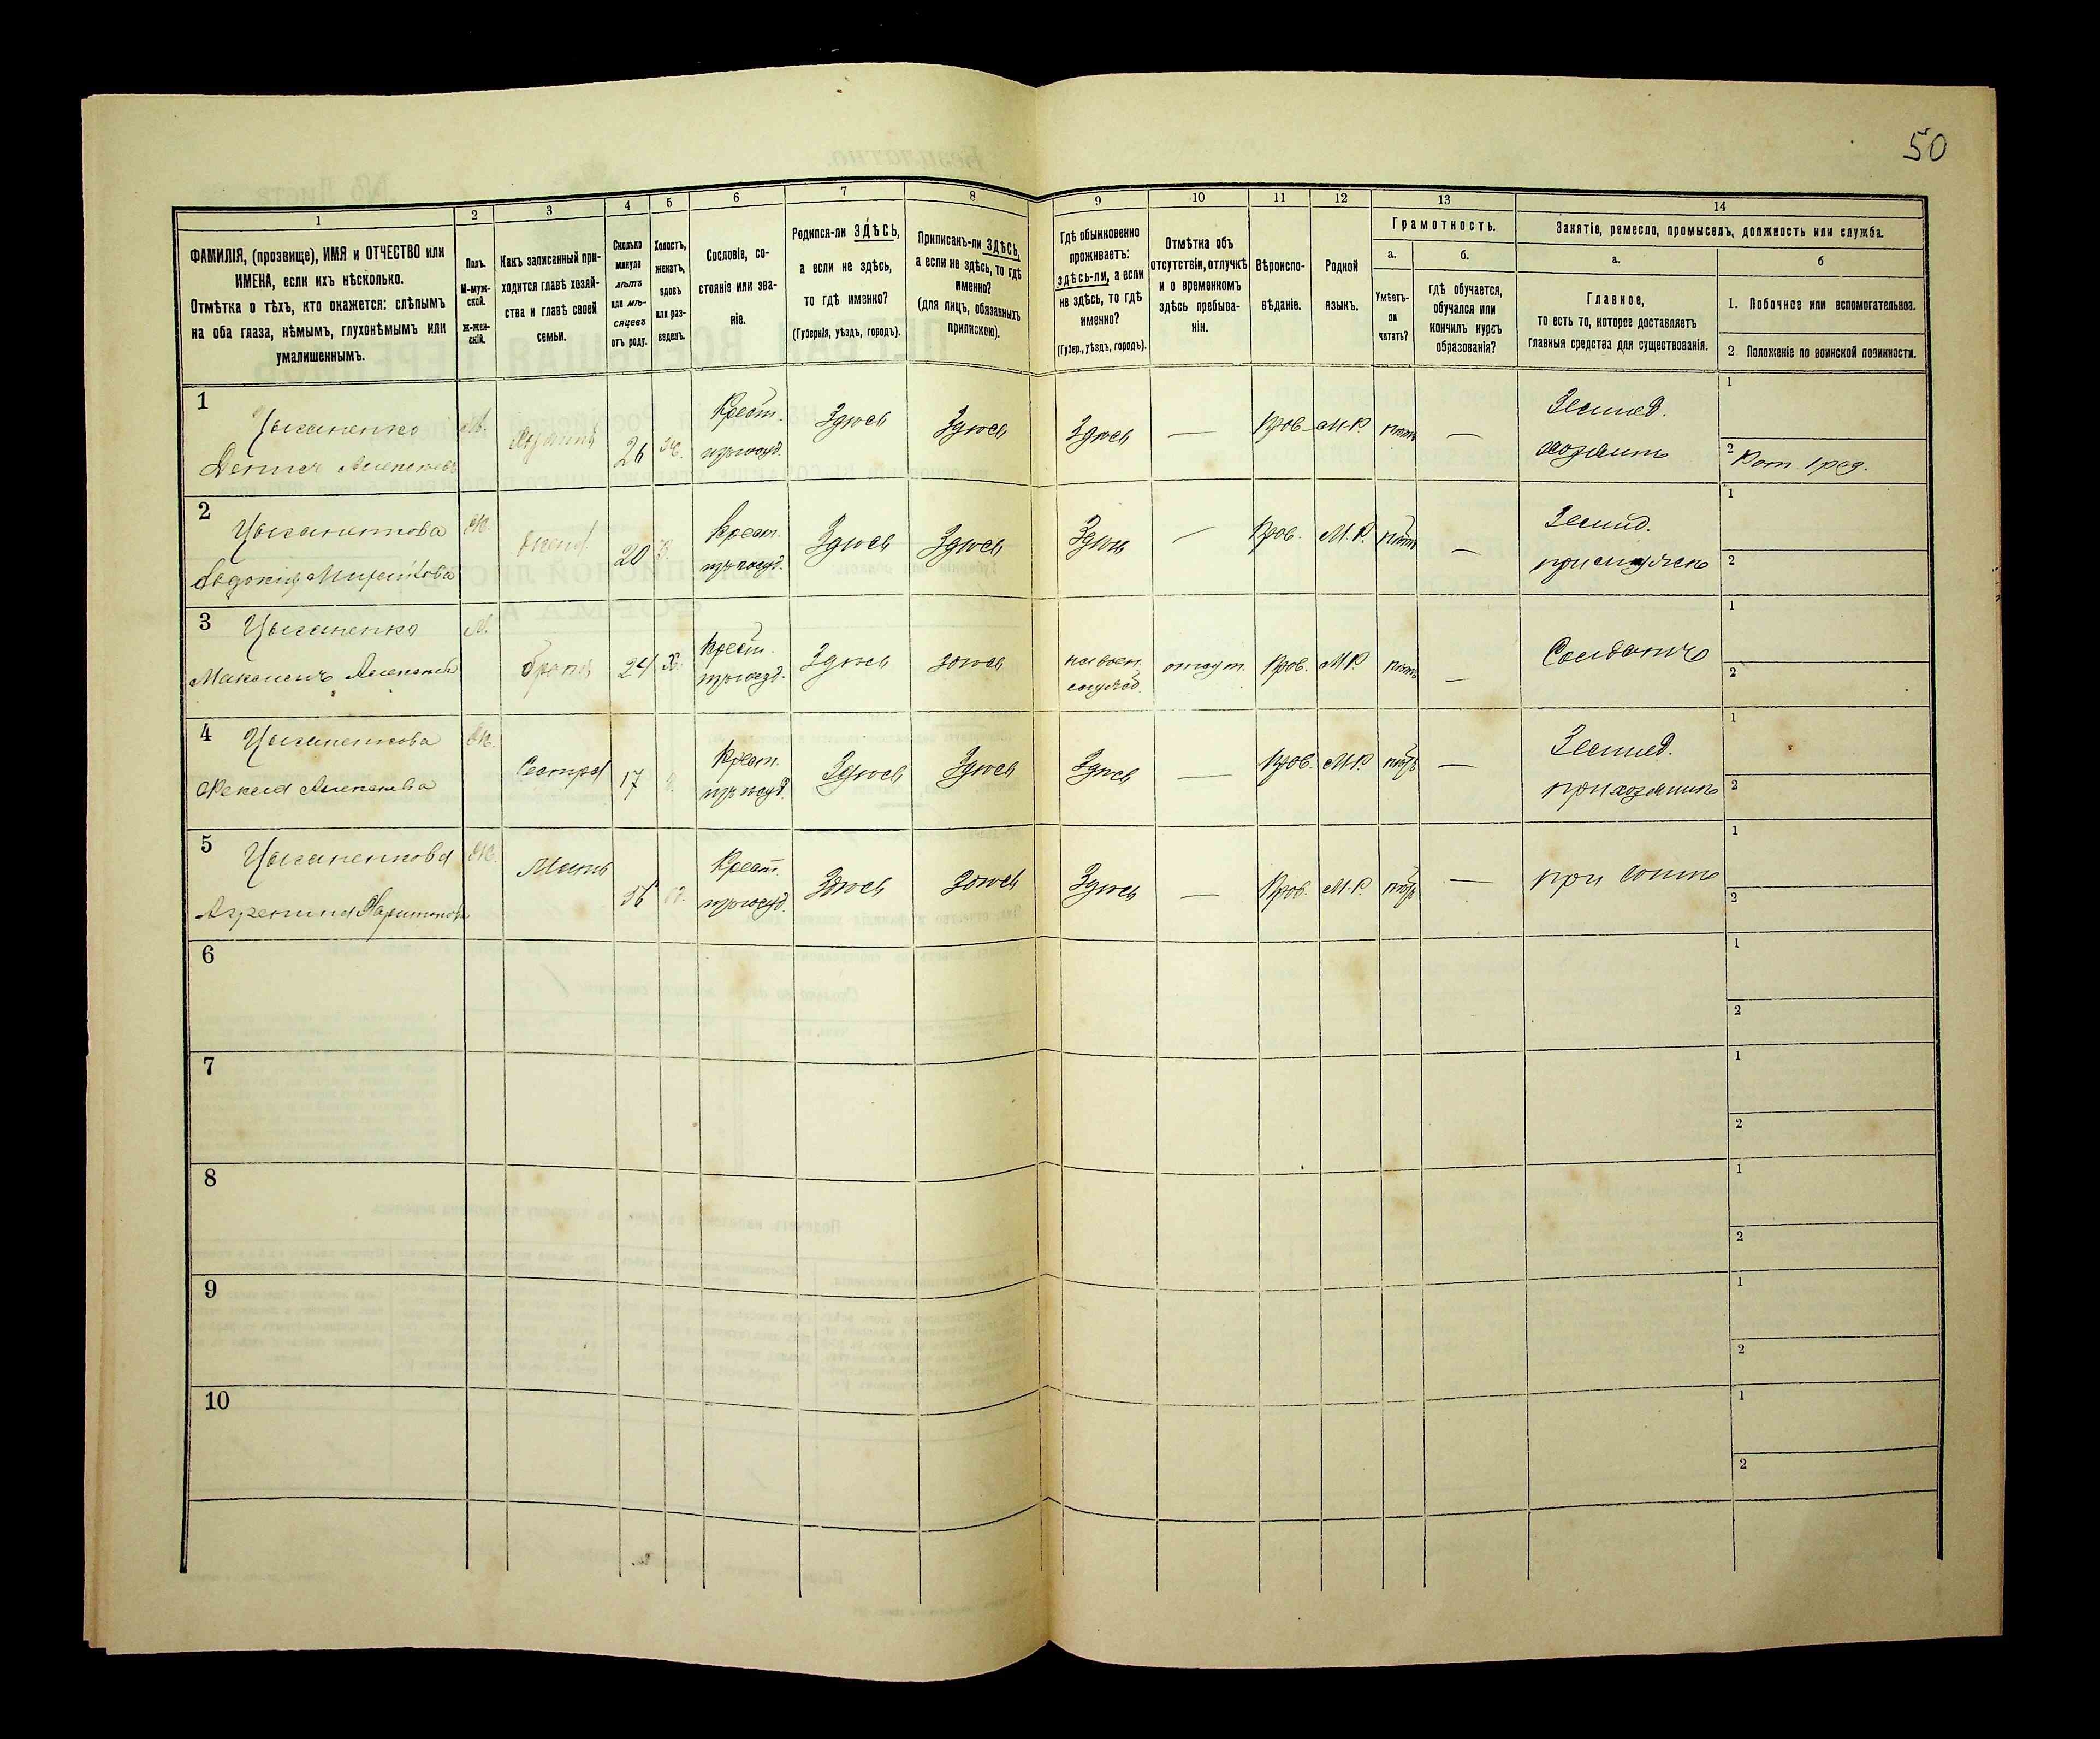 50
1
2
3
4
5
6
7
8
9
10
11
12
13
14
ФАМИЛІЯ, (прозвище), ИМЯ и ОТЧЕСТВО или
ИМЕНА, если ихъ нѣсколько.
Отмѣтка о тѣхъ, кто окажется: слѣпымъ
на оба глаза, нѣмымъ, глухонѣмымъ или
умалишеннымъ.
Полъ.
М-муж-
ской.
Ж-жен-
скій.
Какъ записанный при-
ходится главѣ хозяй-
ства и главѣ своей
семьи.
Сколько
минуло
лѣтъ
или мѣ-
сяцевъ
отъ роду.
Холостъ,
женатъ,
вдовъ
или раз-
веденъ.
Сословіе, со-
стояніе или зва-
ніе.
Родился-ли ЗДѢСЬ,
а если не здѣсь,
то гдѣ именно?
(Губернія, уѣздъ, городъ).
Приписанъ-ли ЗДѢСЬ,
а если не здѣсь, то гдѣ
именно?
(для лицъ, обязанныхъ
припискою).
Гдѣ обыкновенно
проживаетъ:
здѣсь-ли, а если
не здѣсь, то гдѣ
именно?
(Губер., уѣздъ, городъ).
Отмѣтка объ
отсутствіи, отлучкѣ
и о временномъ
здѣсь пребыва-
ніи.
Вѣроиспо-
вѣданіе.
Родной
языкъ.
Грамотность.
а.
Умѣетъ-
ли
читать?
б.
гдѣ обучается,
обучался или
кончилъ курсъ
образованія?
Занятіе, ремесло, промыселъ, должность или служба.
а.
Главное,
то есть то, которое доставляетъ
главныя средства для существованія.
б
1. Побочное или вспомогательное.
2. Положеніе по воинской повинности.
1
Цыганенко М. Хозяинъ 26 Ж. Крест. Здѣсь Здѣсь Здѣсь — Прав. М.Р. нѣтъ — Землед. 1
Денис Алексеев изъ госуд. хозяинъ 2 Рат. 1 раз.
2
Цыганенкова Ж. жена 20 З. Крест. Здѣсь Здѣсь Здѣсь — Прав. М.Р. нѣтъ — Землед. 1
Евдокия изъ госуд. 2
3 Цыганенко М. братъ 24 Х. Крест. Здѣсь здѣсь на воен. отсут. Прав. М.Р. нѣтъ — Солдатъ 1
Максимъ Алексеев изъ госуд. службѣ 2
4 Цыганенкова Ж. Сестра 17 Крест. Здѣсь Здѣсь Здѣсь — Прав. М.Р. нѣтъ — Землед. 1
Алексеева изъ госуд. при хозяинѣ 2
5 Цыганенкова Ж. Мать 56 Крест. Здѣсь здѣсь Здѣсь — Прав. М.Р. нѣтъ — при 1
изъ госуд. 2
6
1
2
7
1
2
8
1
2
9
1
2
10
1
2